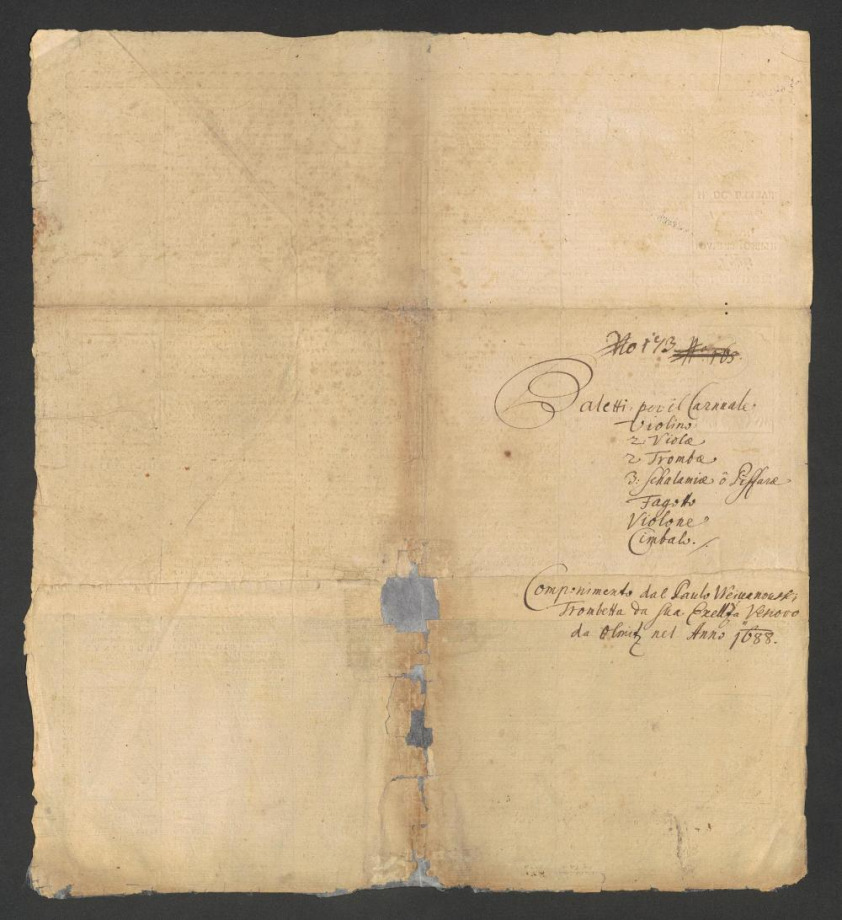 No 173 No 165.
Baletti per il Carnuale
Violino
2: Violæ
2: Trombæ
3: Schalamiæ ô Piffaræ
Fagotto
Violone
Cimbalo.
Componimento dal Paulo Weiuanouski
Trombetta da sua Exellza Vescovo
da Olmitz nel Anno 1688.